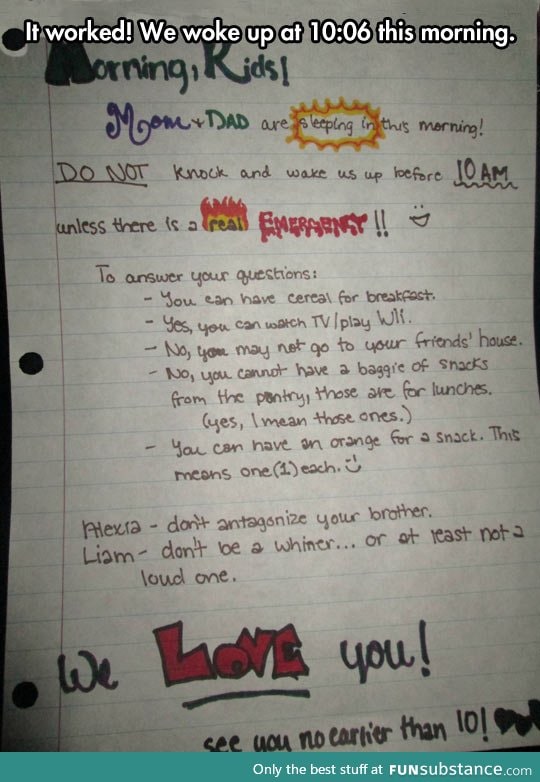 It worked! We woke up at 10:06 this morning.
Morning, Kids!
Mom + DAD are sleeping in this morning!
DO NOT knock and wake us up before 10 AM
unless there is a real EMERGENCY!!
To answer your questions:
- You can have cereal for breakfast.
- Yes, you can watch TV/play Wii.
- No, you may not go to your friends' house.
- No, you cannot have a baggie of snacks
from the pantry, those are for lunches.
(yes, I mean those ones.)
- You can have an orange for a snack. This
means one (1) each.
Alexia - don't antagonize your brother.
Liam - don't be a whiner... or at least not a
loud one.
We LOVE you!
see you no earlier than 10!
Only the best stuff at FUNsubstance.com